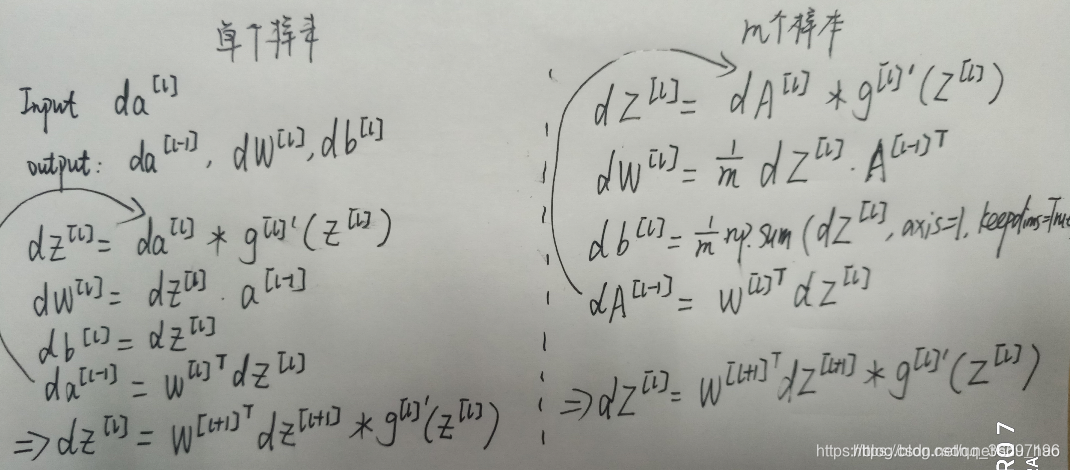 单个样本
Input da^[l]
output: da^[l-1], dW^[l], db^[l]
dz^[l] = da^[l] * g^[l]'(z^[l])
dw^[l] = dz^[l] · a^[l-1]
db^[l] = dz^[l]
da^[l-1] = w^[l]T dz^[l]
=> dz^[l] = W^[l+1]T dz^[l+1] * g^[l]'(z^[l])
m个样本
dZ^[l] = dA^[l] * g^[l]'(Z^[l])
dW^[l] = 1/m dZ^[l] · A^[l-1]T
db^[l] = 1/m np.sum(dZ^[l], axis=1, keepdims=True
dA^[l-1] = W^[l]T dZ^[l]
=> dZ^[l] = W^[l+1]T dZ^[l+1] * g^[l]'(Z^[l])